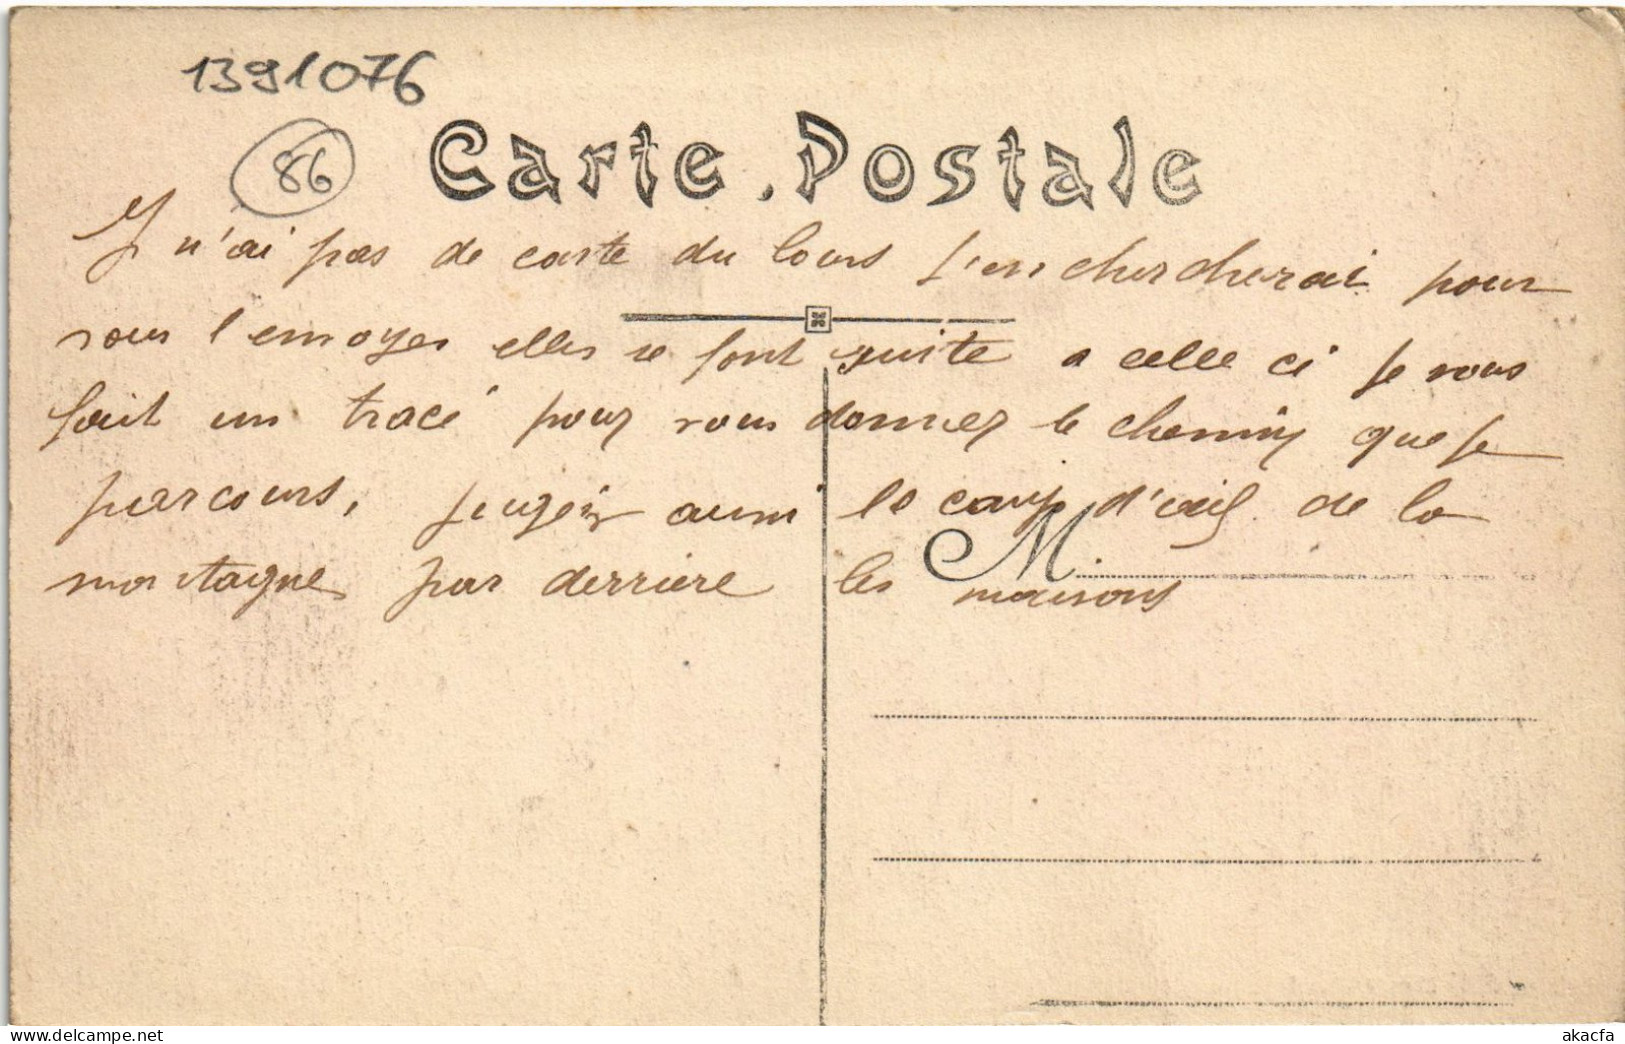 1391076
86
Carte Postale
J n'ai pas de carte du cours j'en chercherai pour
vous l'envoyer elles se font suite a celle ci je vous
fait un tracé pour vous donner le chemin que je
parcours, jugéz aussi le coup d'oeil de la
montagne par derriere les maisons
M.
akacfa